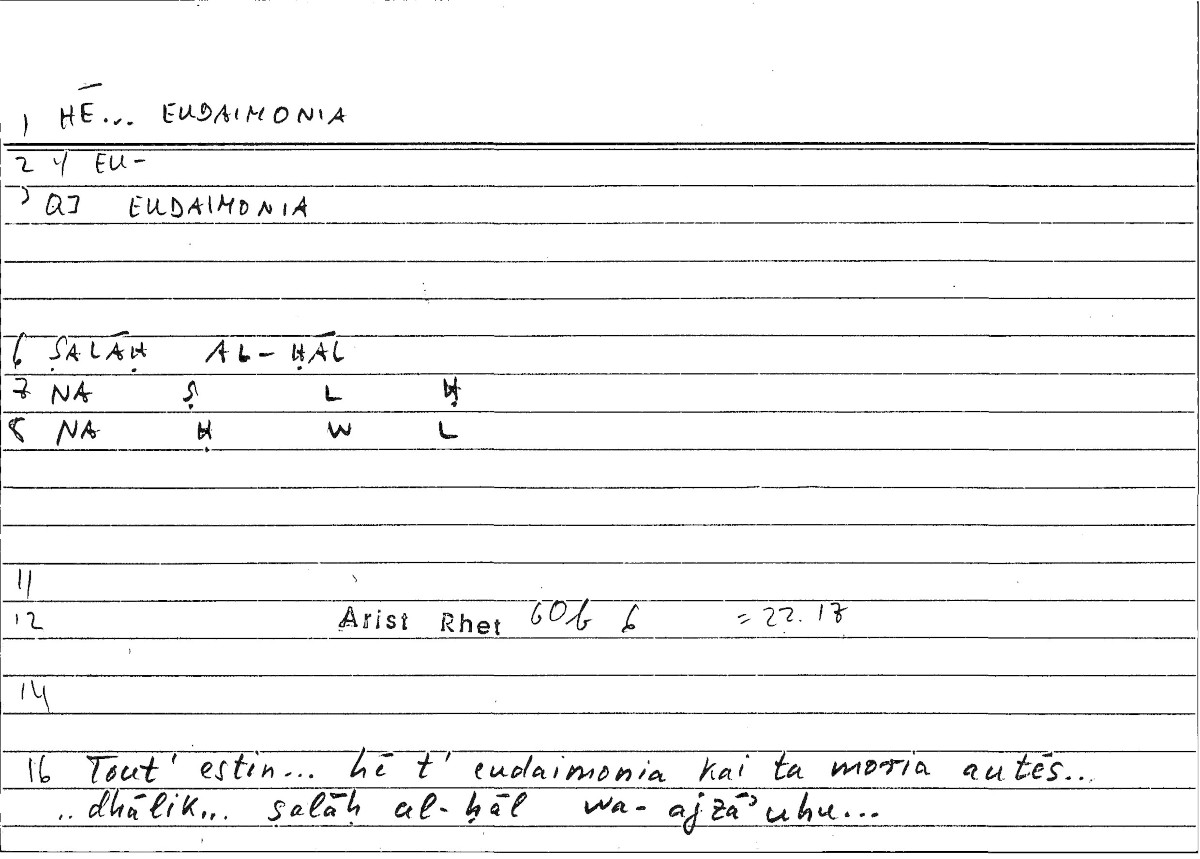 1 HĒ... EUDAIMONIA
2 4 EU-
3 QI EUDAIMONIA
6 ṢALĀḤ AL-ḤĀL
7 NA Ṣ L Ḥ
8 NA Ḥ W L
11
12 Arist Rhet 60b 6 =22.17
14
16 Tout' estin... hē t' eudaimonia kai ta moria autēs...
.. dhālik... ṣalāḥ al-ḥāl wa-ajzāʾuhu...